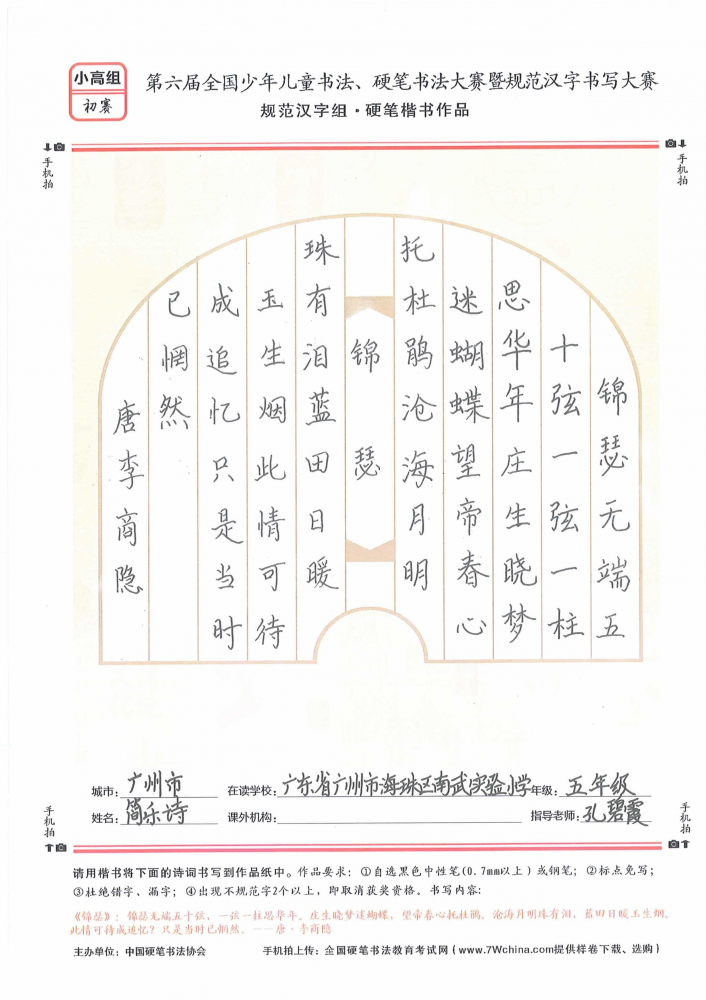 小高组
初赛
第六届全国少年儿童书法、硬笔书法大赛暨规范汉字书写大赛
规范汉字组·硬笔楷书作品
手机拍
手机拍
锦瑟无端五
十弦一弦一柱
思华年庄生晓梦
迷蝴蝶望帝春心
托杜鹃沧海月明
锦瑟
珠有泪蓝田日暖
玉生烟此情可待
成追忆只是当时
已惘然
唐李商隐
城市：广州市 在读学校：广东省广州市海珠区南武实验小学 年级：五年级
姓名：简乐诗 课外机构： 指导老师：孔碧霞
手机拍
手机拍
请用楷书将下面的诗词书写到作品纸中。作品要求：①自选黑色中性笔(0.7mm以上）或钢笔；②标点免写；
③杜绝错字、漏字；④出现不规范字2个以上，即取消获奖资格。书写内容：
《锦瑟》：锦瑟无端五十弦，一弦一柱思华年。庄生晓梦迷蝴蝶，望帝春心托杜鹃。沧海月明珠有泪，蓝田日暖玉生烟。
此情可待成追忆？只是当时已惘然。——唐·李商隐
主办单位：中国硬笔书法协会 手机拍上传：全国硬笔书法教育考试网（www.7Wchina.com提供样卷下载、选购）